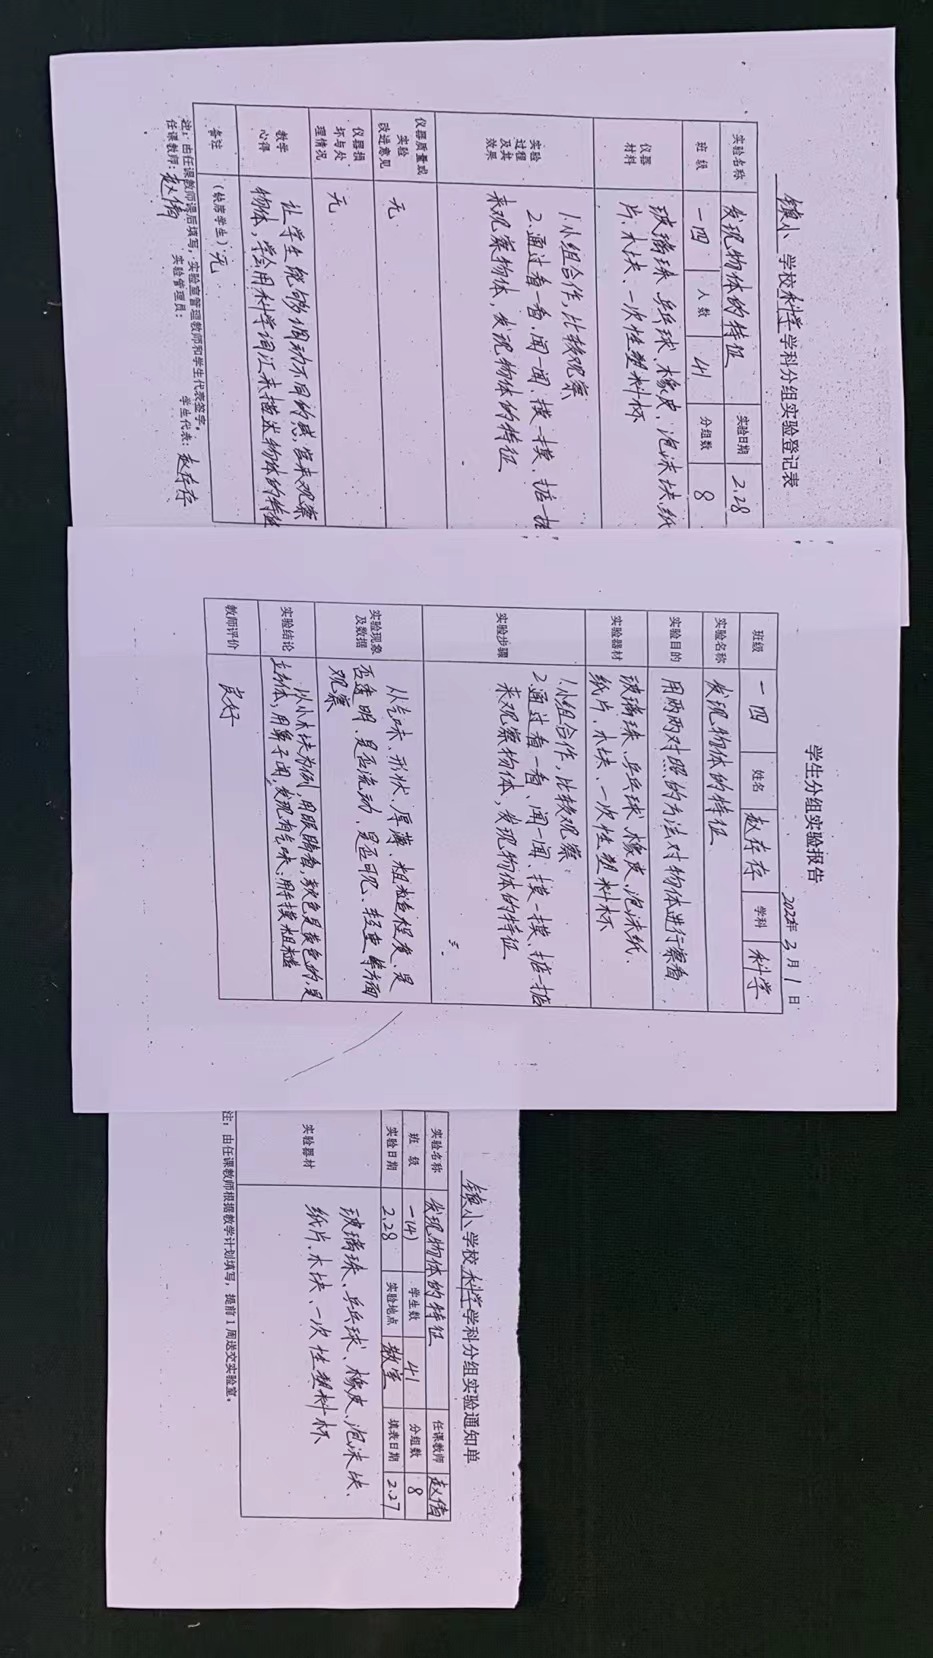 镇小学校科学学科分组实验登记表
实验名称 发现物体的特征 实验日期 2.28
班级 一四 人数 41 分组数 8
仪器材料 玻璃珠、乒乓球、橡皮、泡沫块、纸
片、木块、一次性塑料杯
实验过程及其效果 1.小组合作,比较观察
2.通过看一看、闻一闻、摸一摸、掂一掂
来观察物体,发现物体的特征
仪器质量或实验改进意见 无
仪器损坏与处理情况 无
教学心得 让学生能够调动不同的感官来观察
物体,学会用科学词汇来描述物体的特征
备注 (缺席学生)无
注:由任课教师课后填写,实验室管理教师和学生代表签字。
任课教师:赵倩 实验管理员: 学生代表:赵存存
学生分组实验报告
2022年3月1日
班级 一四 姓名 赵存存 学科 科学
实验名称 发现物体的特征
实验目的 用两两对照的方法对物体进行察看
实验器材 玻璃珠、乒乓球、橡皮、泡沫纸、
纸片、木块、一次性塑料杯
实验步骤 1.小组合作,比较观察:
2.通过看一看、闻一闻、摸一摸、掂一掂
来观察物体,发现物体的特征
实验现象及数据 从气味、形状、厚薄、粗糙程度、是
否透明、是否流动、是否可见、轻重等方面
观察
实验结论 以小木块为例,用眼睛看,颜色是黄色的,是
立方体,用鼻子闻,发现有气味,用手摸粗糙
教师评价 良好
镇小学校科学学科分组实验通知单
实验名称 发现物体的特征 任课教师 赵倩
班级 一(4) 学生数 41 分组数 8
实验日期 2.28 实验地点 教室 填表日期 2.27
实验器材 玻璃珠、乒乓球、橡皮、泡沫块、
纸片、木块、一次性塑料杯
注:由任课教师根据教学计划填写,提前1周送交实验室。